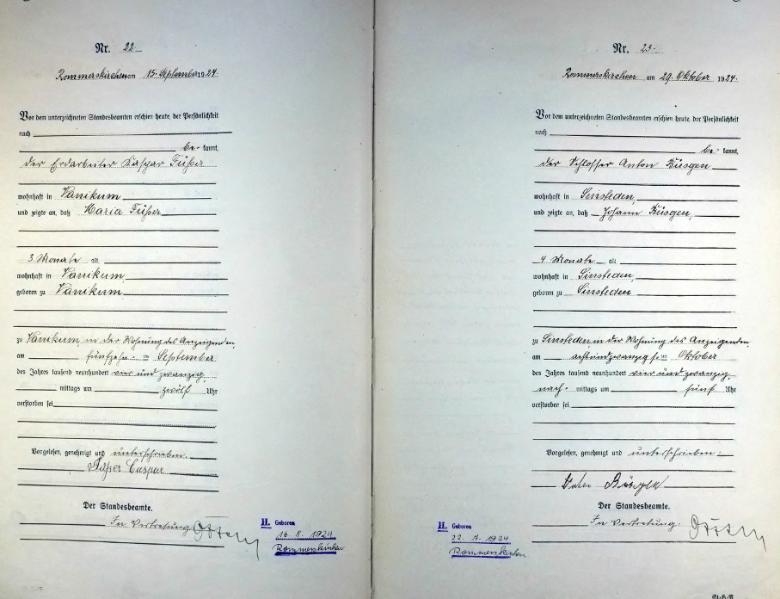 Nr. 22
Rommerskirchen am 15. September 1924
Vor dem unterzeichneten Standesbeamten erschien heute, der Persönlichkeit
nach
be kannt,
der Erdarbeiter Kaspar
wohnhaft in Vanikum
und zeigte an, daß Maria
3 Monate alt
wohnhaft in Vanikum,
geboren zu Vanikum
zu Vanikum, in der Wohnung des Anzeigenden,
am fünfzehnten September
des Jahres tausend neunhundert vier und zwanzig,
mittags um zwölf Uhr
verstorben sei
Vorgelesen, genehmigt und unterschrieben.
Caspar
Der Standesbeamte.
In Vertretung
II. Geboren
1924
Rommerskirchen
Nr. 23
Rommerskirchen am 29. Oktober 1924
Vor dem unterzeichneten Standesbeamten erschien heute, der Persönlichkeit
nach
be kannt,
der Schlosser Anton
wohnhaft in Sinsteden,
und zeigte an, daß Johann
4 Monate alt
wohnhaft in Sinsteden,
geboren zu Sinsteden
zu Sinsteden, in der Wohnung des Anzeigenden,
am achtundzwanzigsten Oktober
des Jahres tausend neunhundert vier und zwanzig,
nach mittags um fünf Uhr
verstorben sei
Vorgelesen, genehmigt und unterschrieben.
Der Standesbeamte.
In Vertretung.
II. Geboren
1924
Rommerskirchen